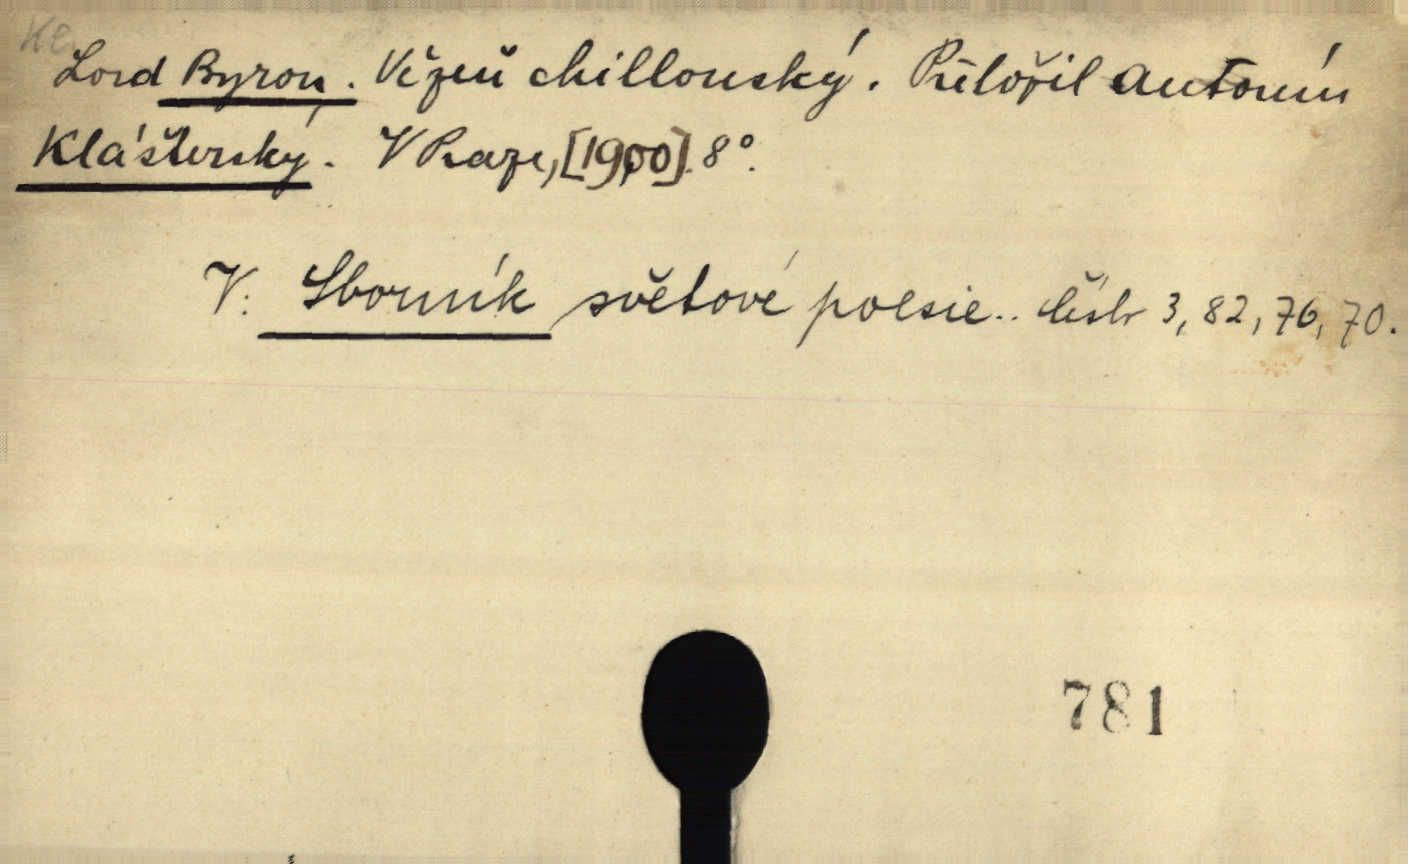 Ke
Lord Byron. Vězeň chillonský. Přeložil Antonín
Klášterský. V Praze, [1900]. 8°.
V: Sborník světové poesie.. číslo 3, 82, 76, 70.
781